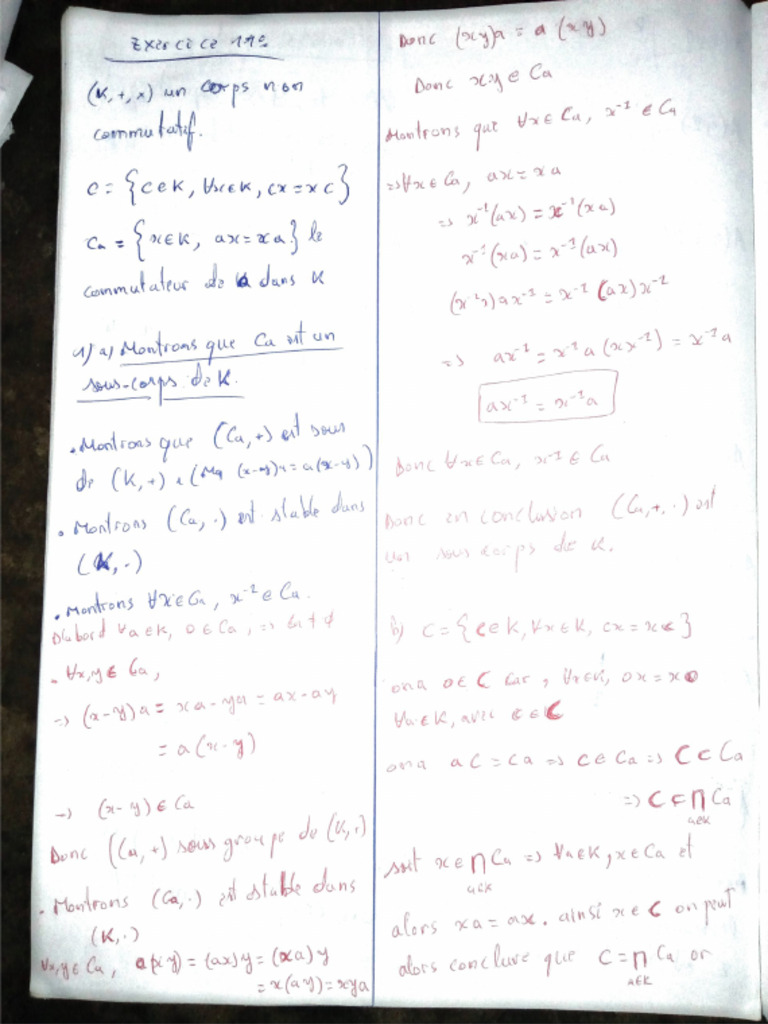 Exercice
(K, +, ×) un corps non
commutatif.
C = {c∈K, ∀x∈K, cx = xc}
Ca = {x∈K, ax = xa} le
commutateur de a dans K
1) a) Montrons que Ca est un
sous-corps de K.
• Montrons que (Ca, +) est sous
de (K, +) (Mq (x-y)a = a(x-y))
• Montrons (Ca, ·) est stable dans
(K, ·)
• Montrons ∀x∈Ca, x⁻¹ ∈ Ca.
D'abord ∀a∈K, 0 ∈ Ca, => Ca ≠ ∅
• ∀x,y ∈ Ca,
=> (x-y)a = xa - ya = ax - ay
= a(x-y)
=> (x-y) ∈ Ca
Donc ((Ca, +) sous groupe de (K, ·)
• Montrons (Ca, ·) est stable dans
(K, ·)
∀x,y ∈ Ca, a(xy) = (ax)y = (xa)y
= x(ay) = xya
Donc (xy)a = a(xy)
Donc xy ∈ Ca
Montrons que ∀x ∈ Ca, x⁻¹ ∈ Ca
=> ∀x∈Ca, ax = xa
=> x⁻¹(ax) = x⁻¹(xa)
x⁻¹(xa) = x⁻¹(ax)
(x⁻¹x)ax⁻¹ = x⁻¹(ax)x⁻¹
=> ax⁻¹ = x⁻¹a(xx⁻¹) = x⁻¹a
ax⁻¹ = x⁻¹a
Donc ∀x∈Ca, x⁻¹ ∈ Ca
Donc en conclusion (Ca, +, ·) est
un sous corps de K.
b) C = {c∈K, ∀x∈K, cx = xc}
on a 0∈C car, ∀x∈K, 0x = x0
∀a∈K, avec c∈C
on a ac = ca => c∈Ca => C⊂Ca
=> C⊂∩Ca
a∈K
soit x∈∩Ca => ∀a∈K, x∈Ca et
a∈K
alors xa = ax. ainsi x∈C on peut
alors conclure que C = ∩Ca or
a∈K